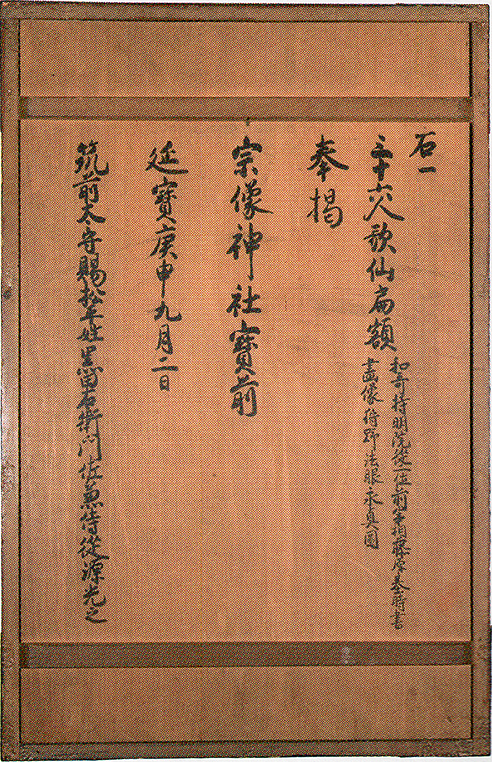 右一
三十六人歌仙扁額
和哥持明院從一位前宰相藤原基時書
畫像狩野法眼永真圖
奉掲
宗像神社寶前
延寶庚申九月二日
筑前太守賜松平姓黒田右衛門佐兼侍從源光之